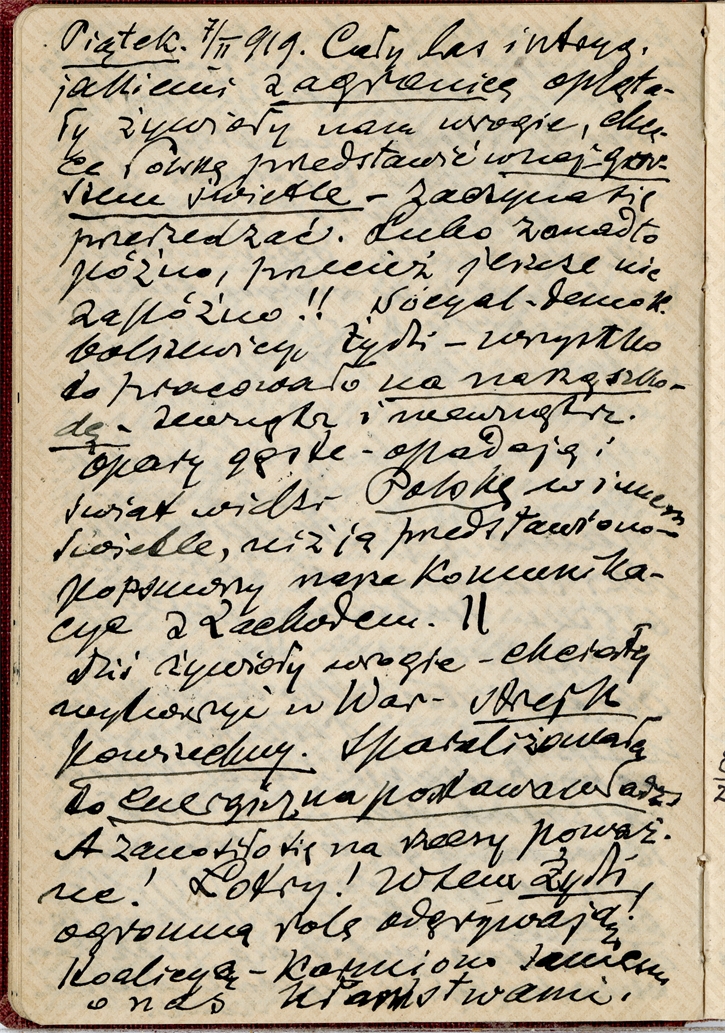 Piątek. 7/II 919. Cały las intryg,
jakiemi zagranicą opląta-
ły żywioły nam wrogie, chcą-
ce Polskę przedstawić w naj-gor-
szem świetle - zaczyna się
przerzedzać. Lubo zanadto
późno, przecież jeszcze nie
zapóźno!! Socyal-demok.
bolszewicy, Żydzi - wszystko
to pracowało na naszą szko-
dę - zewnątrz i wewnątrz.
Opary gęste - opadają i
świat widzi Polskę w innem
świetle, niż ją przedstawiono -
popsuwszy nasze komunika-
cye z Zachodem. ||
Dziś żywioły wrogie - chciały
wytworzyć w War- strejk
powszechny. Sparaliżowała
to energiczna postawa władz,
A zanosiło się na rzeczy poważ-
ne! Łotry! W tem Żydzi,
ogromną rolę odgrywają!
Koalicyą - karmiono
o nas kłamstwami.